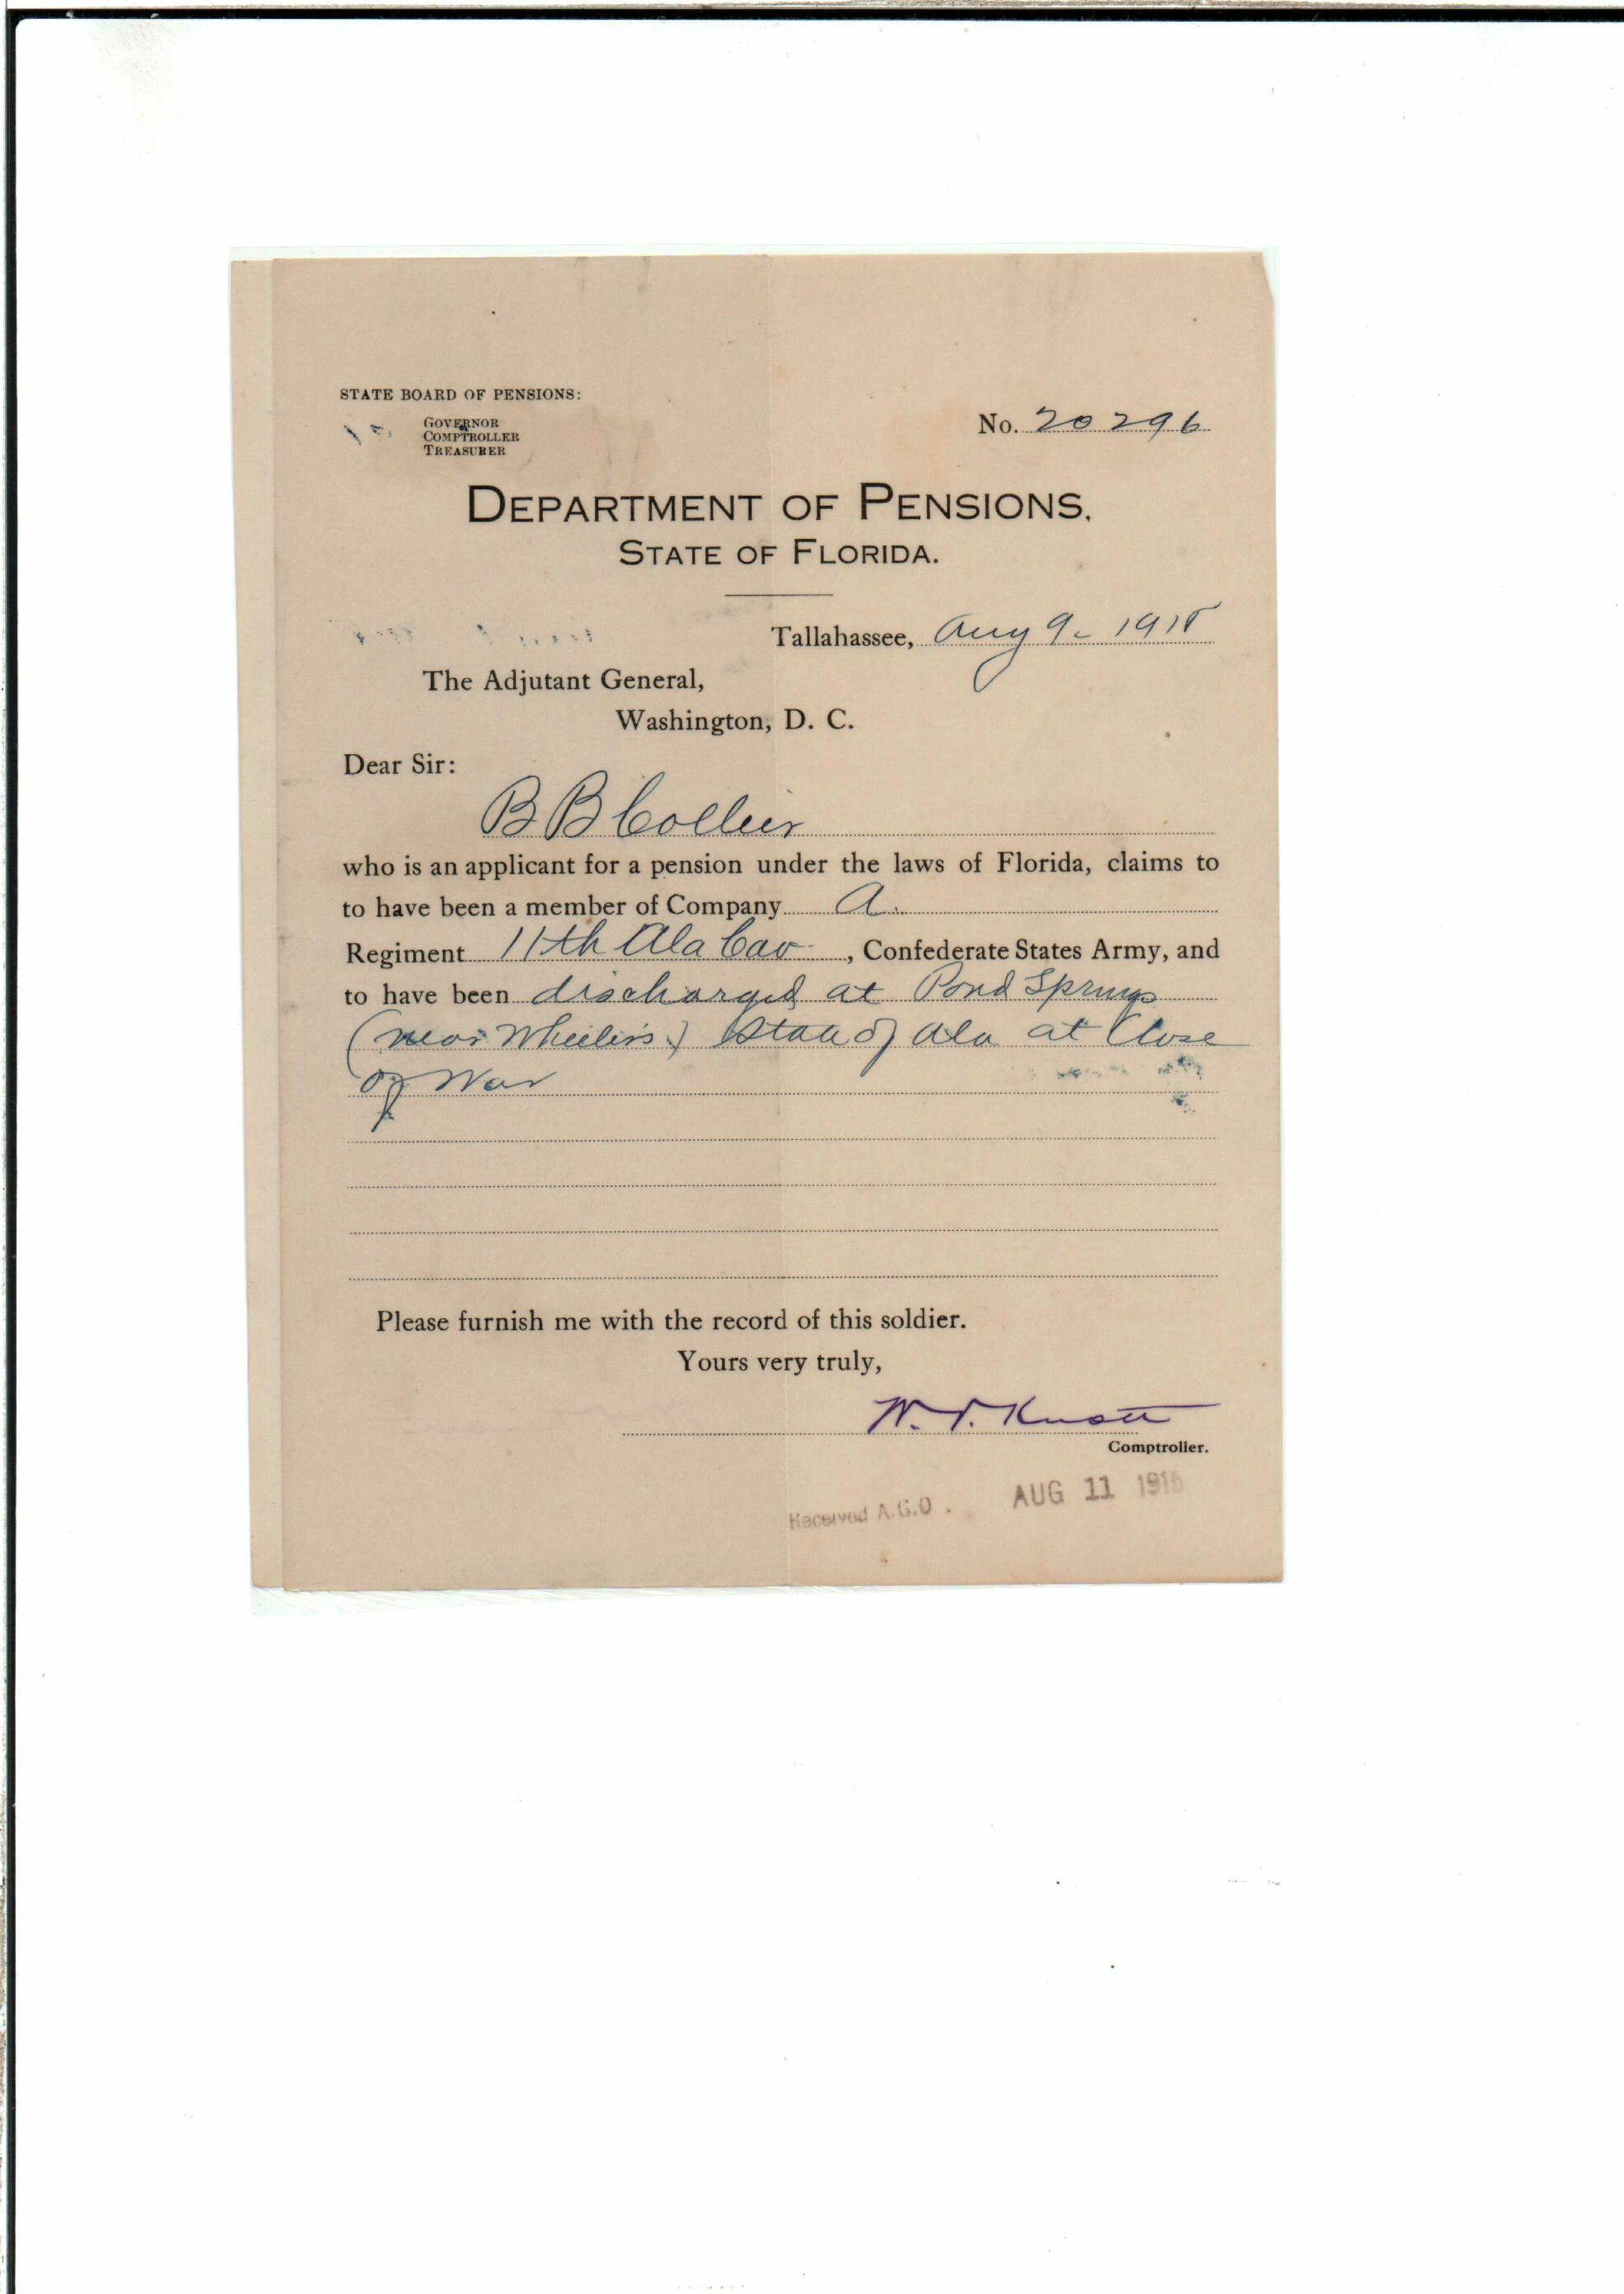 STATE BOARD OF PENSIONS:
GOVERNOR
COMPTROLLER
TREASURER
No. 20296
DEPARTMENT OF PENSIONS.
STATE OF FLORIDA.
Tallahassee, Aug 9 - 1915
The Adjutant General,
Washington, D. C.
Dear Sir:
B B Collier
who is an applicant for a pension under the laws of Florida, claims to
to have been a member of Company A.
Regiment 11th Ala Cav, Confederate States Army, and
to have been discharged at Pond Springs
(near Wheeler's) State of Ala at Close
of War
Please furnish me with the record of this soldier.
Yours very truly,
W. V. Knott
Comptroller.
Received A.G.O. AUG 11 1915